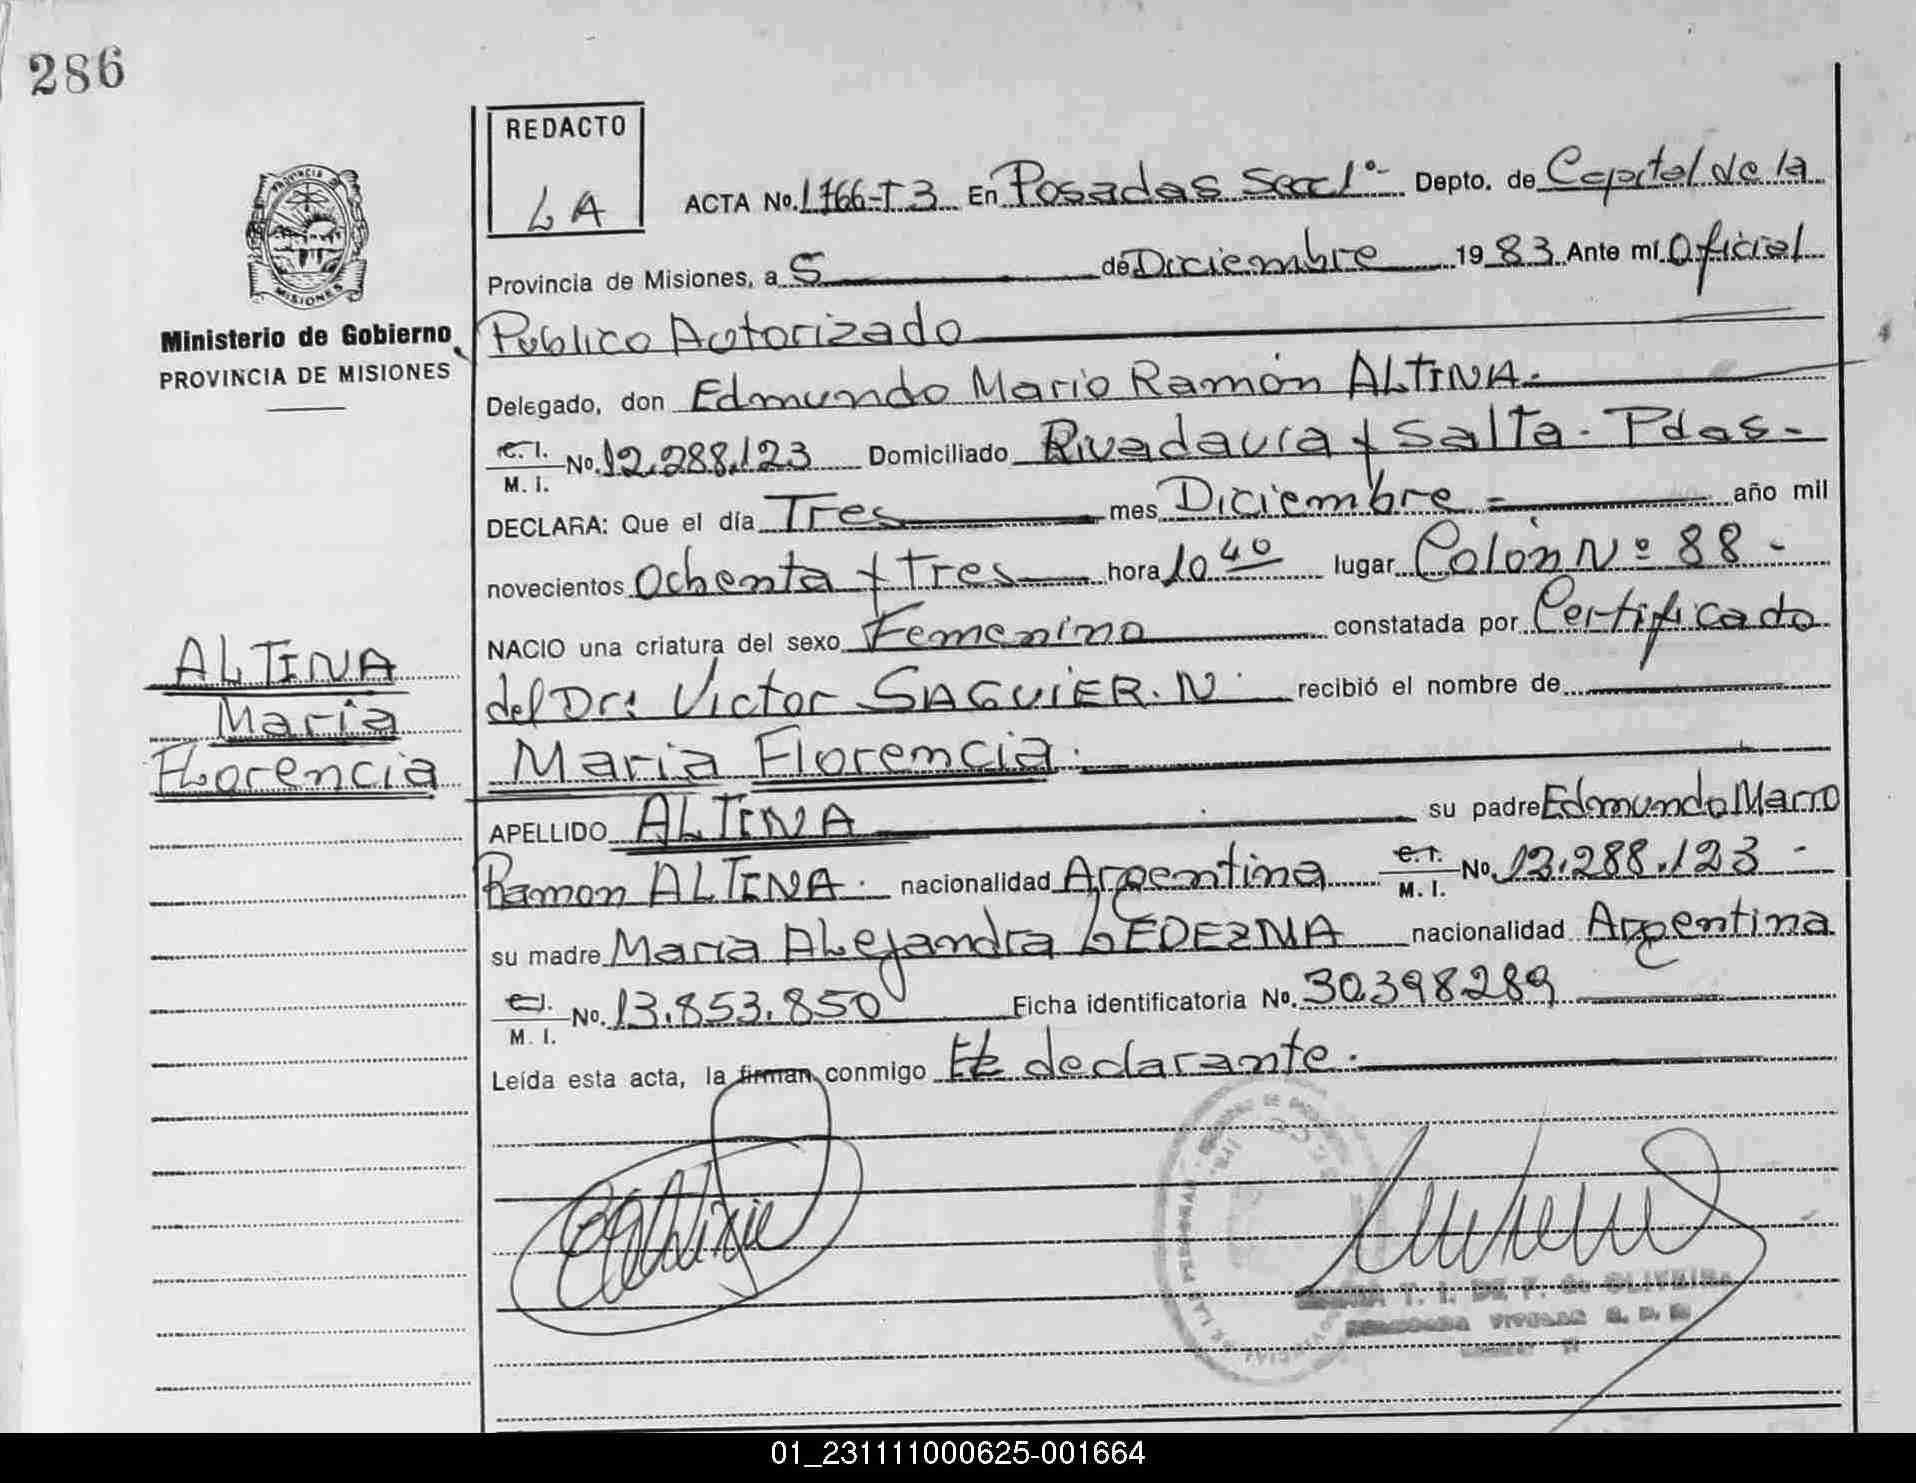 286
REDACTO
LA
ACTA No. 1766-T3 En Posadas Secc 1º- Depto. de Capital de la
Provincia de Misiones, a 5 de Diciembre 1983 Ante mí Oficial
Público Autorizado
Delegado, don Edmundo Mario Ramón ALTINA.
C.I. M.I. No. 12.288.123 Domiciliado Rivadavia y Salta - Pdas -
DECLARA: Que el día Tres mes Diciembre = año mil
novecientos Ochenta y Tres hora 10 40 lugar Colón Nº 88 -
NACIO una criatura del sexo Femenino constatada por Certificado
del Dr: Victor SAGUIER. N. recibió el nombre de
Maria Florencia.
APELLIDO ALTINA su padre Edmundo Mario
Ramon ALTINA. nacionalidad Argentina C.I. M.I. No. 13.288.123 -
su madre María Alejandra LEDEZMA nacionalidad Argentina
C.I. M.I. No. 13.853.850 Ficha identificatoria No. 30398289
Leída esta acta, la firman conmigo El declarante.
PROVINCIA
MISIONES
Ministerio de Gobierno
PROVINCIA DE MISIONES
ALTINA
Maria
Florencia
DE F. de OLIVEIRA
01_231111000625-001664